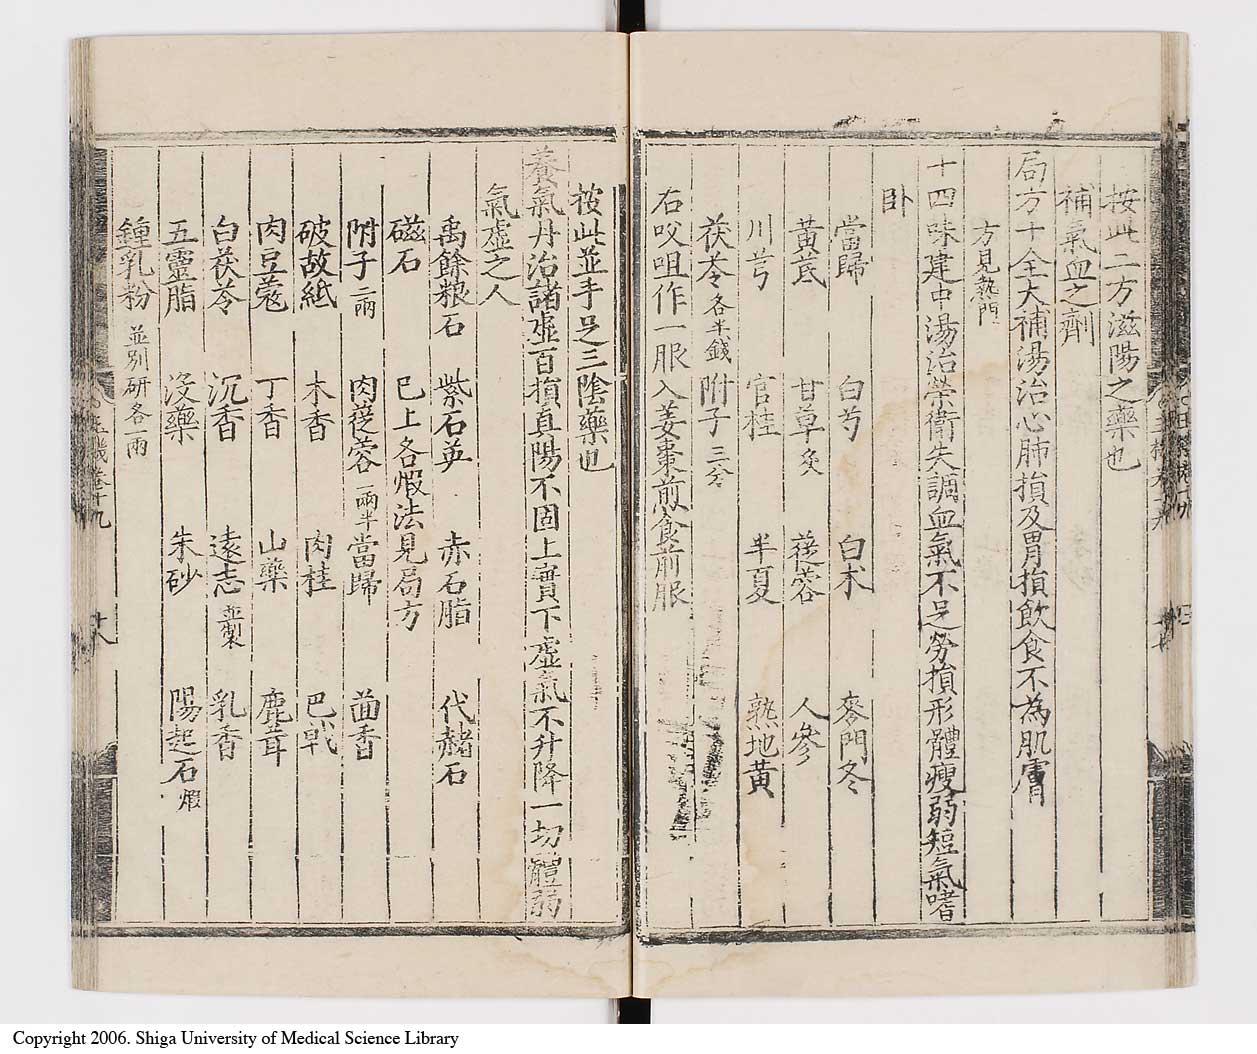 按此二方滋陽之藥也
補氣血之劑
局方十全大補湯治心肺損及胃損飲食不為肌膚
方見熱門
十四味建中湯治榮衛失調血氣不足勞損形體瘦弱短氣嗜
卧
當歸 白芍 白朮 麥門冬
黃茋 甘草炙 蓯蓉 人參
川芎 官桂 半夏 熟地黃
茯苓各半錢 附子三分
右㕮咀作一服入姜棗煎食前服
按此並手足三陰藥也
養氣丹治諸虛百損真陽不固上實下虛氣不升降一切體弱
氣虛之人
禹餘粮石 紫石英 赤石脂 代赭石
磁石 已上各煅法見局方
附子二兩 肉蓯蓉一兩半 當歸 茴香
破故紙 木香 肉桂 巴戟
肉豆蔻 丁香 山藥 鹿茸
白茯苓 沉香 遠志並製 乳香
五靈脂 沒藥 朱砂 陽起石煅
鍾乳粉並別研各一兩
玉機卷十九
十八
Copyright 2006. Shiga University of Medical Science Library